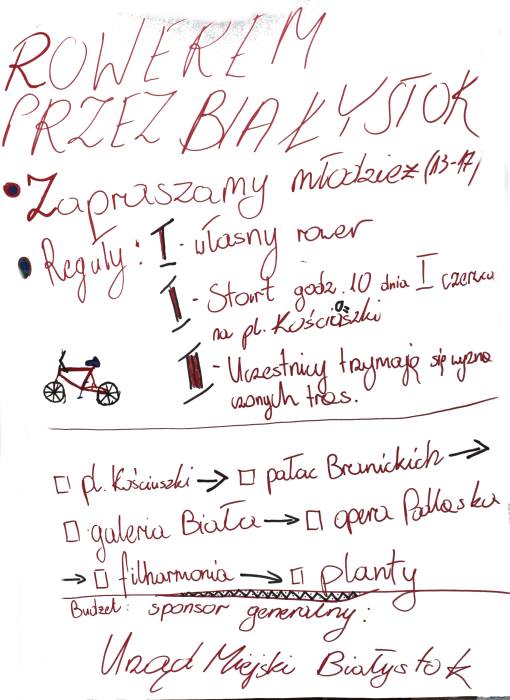 ROWEREM
PRZEZ BIAŁYSTOK
• Zapraszamy młodzież (13-17)
• Reguły: I - własny rower
II - Start godz. 10 dnia I czerwca
na pl. Kościuszki
III - Uczestnicy trzymają się wyzna
czonych tras.
□ pl. Kościuszki → □ pałac Branickich →
□ galeria Biała → □ opera Podlaska
→ □ filharmonia → □ planty
Budżet: sponsor generalny:
Urząd Miejski Białystok